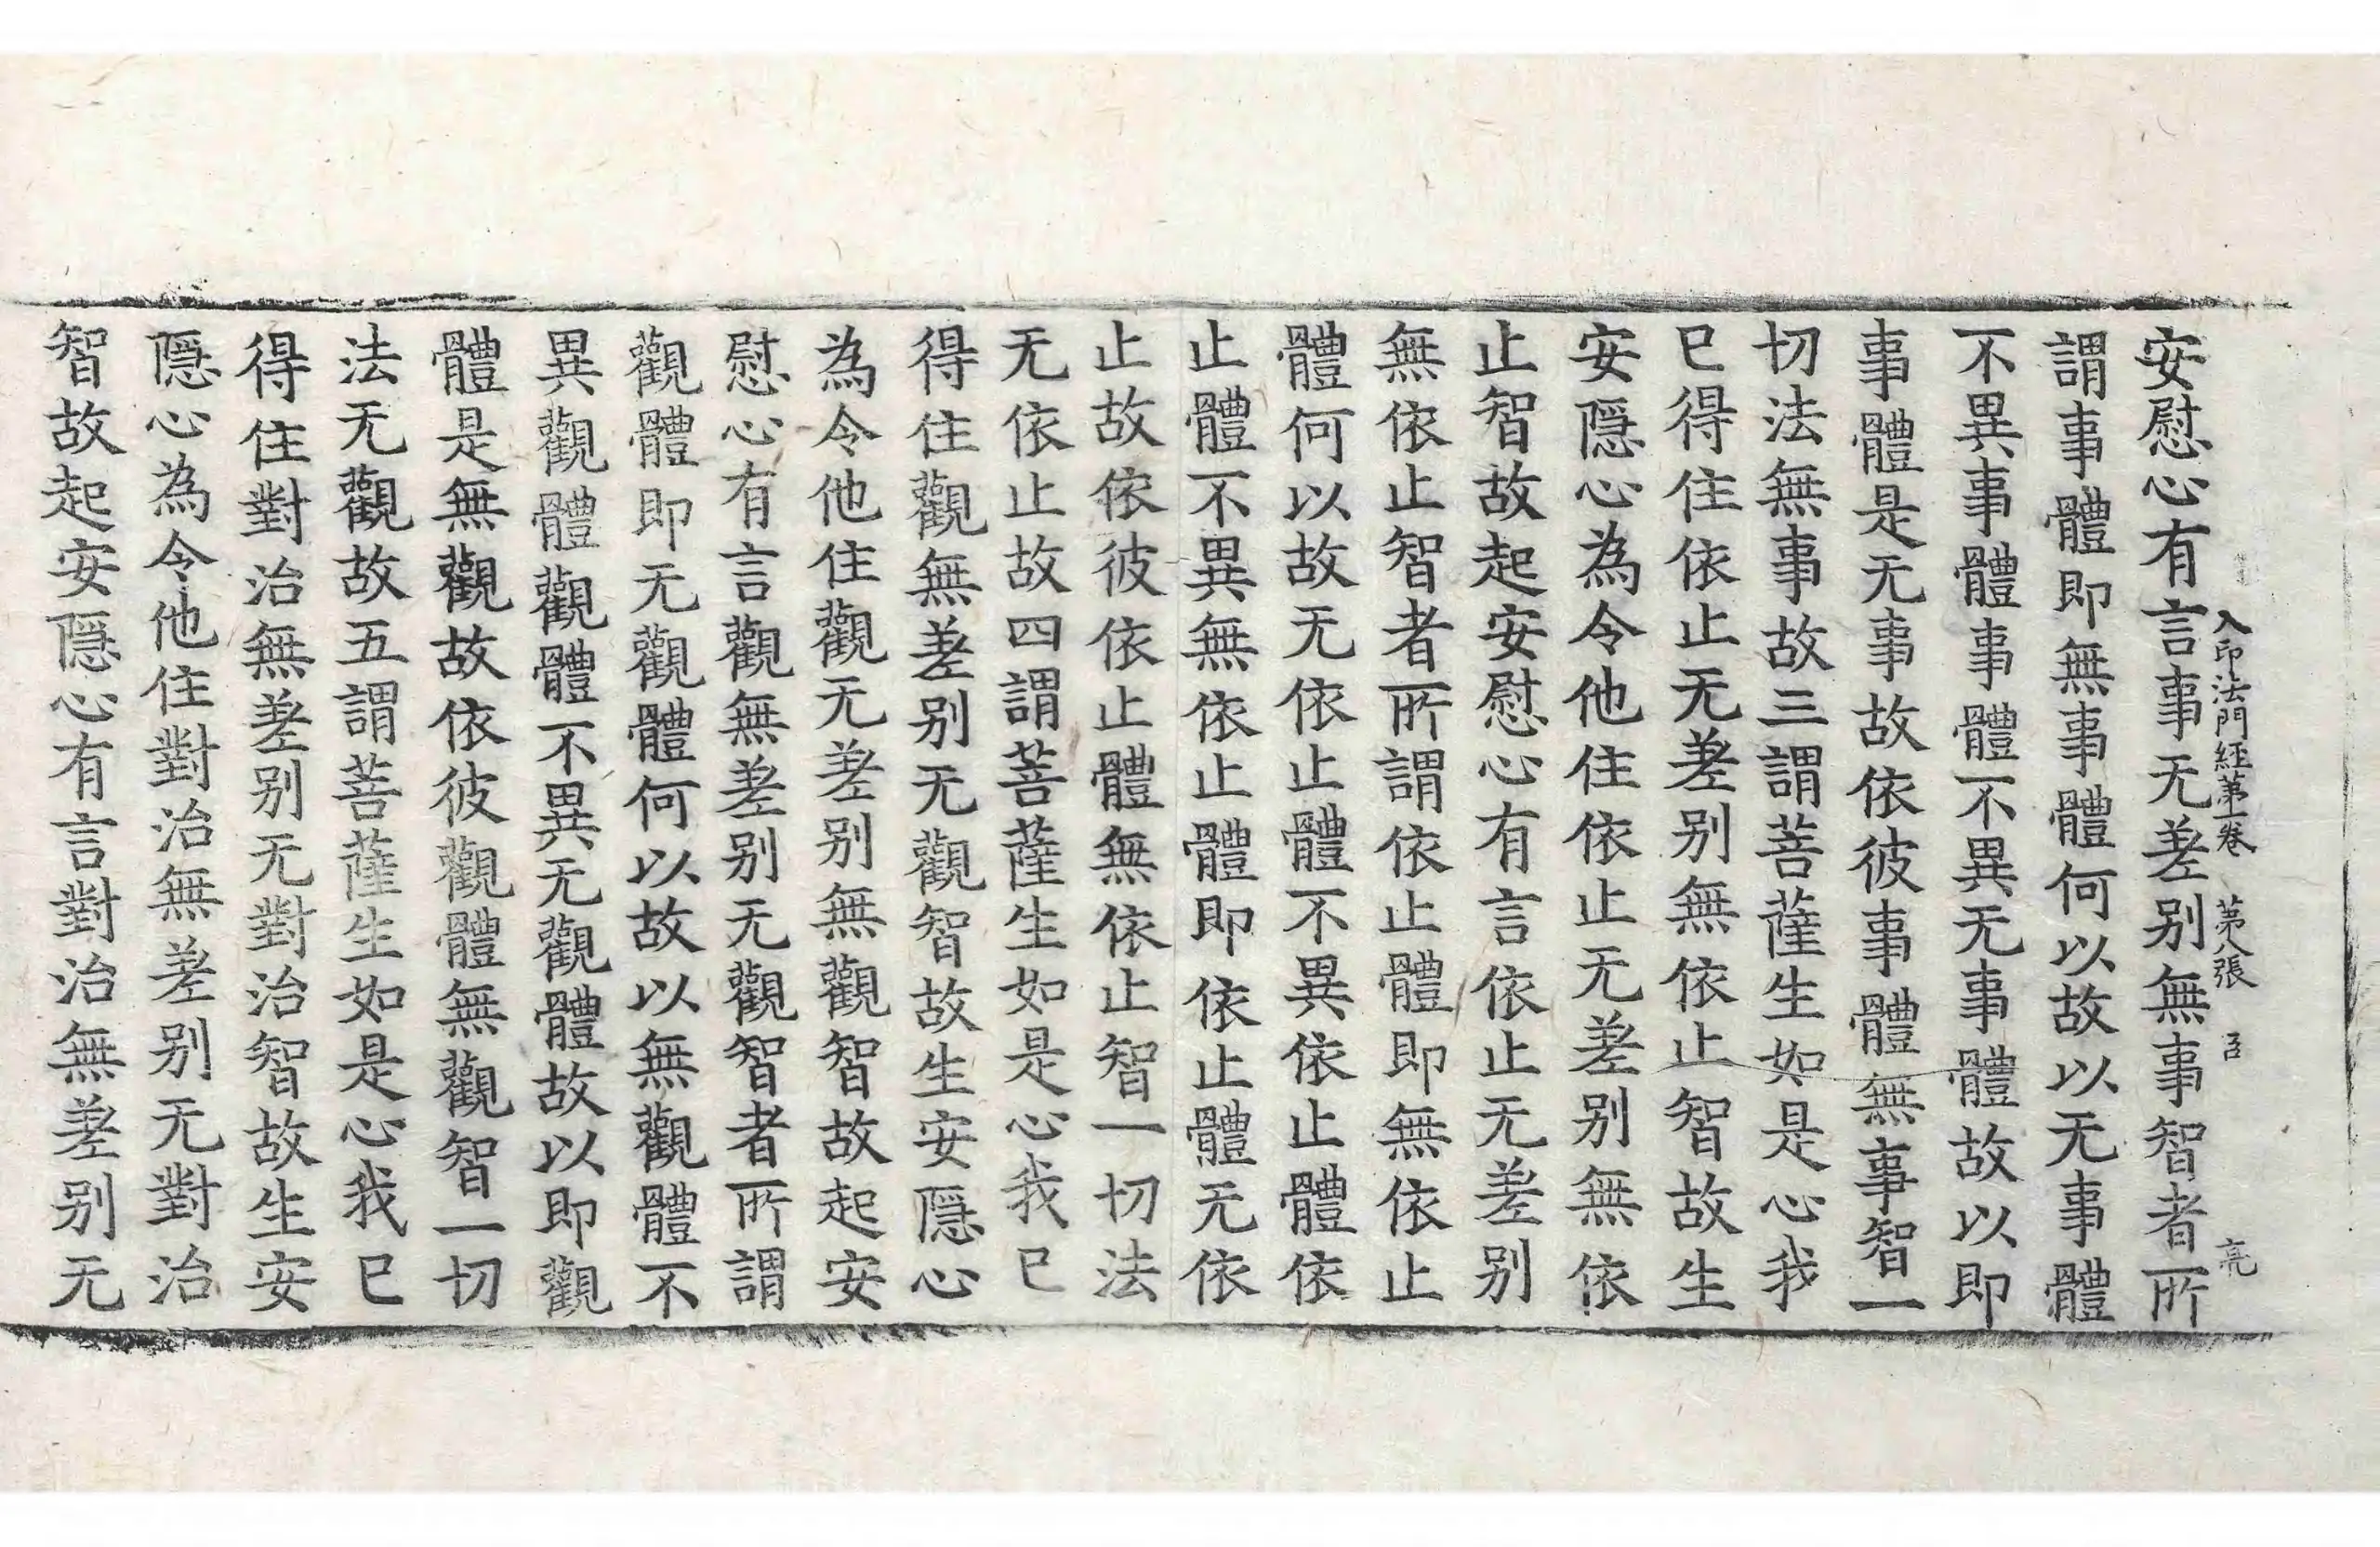 入印法門経苐一卷 苐八張 吕 亮
安慰心有言事无差别無事智者所
謂事體即無事體何以故以无事體
不異事體事體不異无事體故以即
事體是无事故依彼事體無事智一
切法無事故三謂菩薩生如是心我
已得住依止无差别無依止智故生
安隱心為令他住依止无差别無依
止智故起安慰心有言依止无差别
無依止智者所謂依止體即無依止
體何以故无依止體不異依止體依
止體不異無依止體即依止體无依
止故依彼依止體無依止智一切法
无依止故四謂菩薩生如是心我已
得住觀無差别无觀智故生安隱心
為令他住觀无差别無觀智故起安
慰心有言觀無差别无觀智者所謂
觀體即无觀體何以故以無觀體不
異觀體觀體不異无觀體故以即觀
體是無觀故依彼觀體無觀智一切
法无觀故五謂菩薩生如是心我已
得住對治無差别无對治智故生安
隱心為令他住對治無差别无對治
智故起安隱心有言對治無差别无